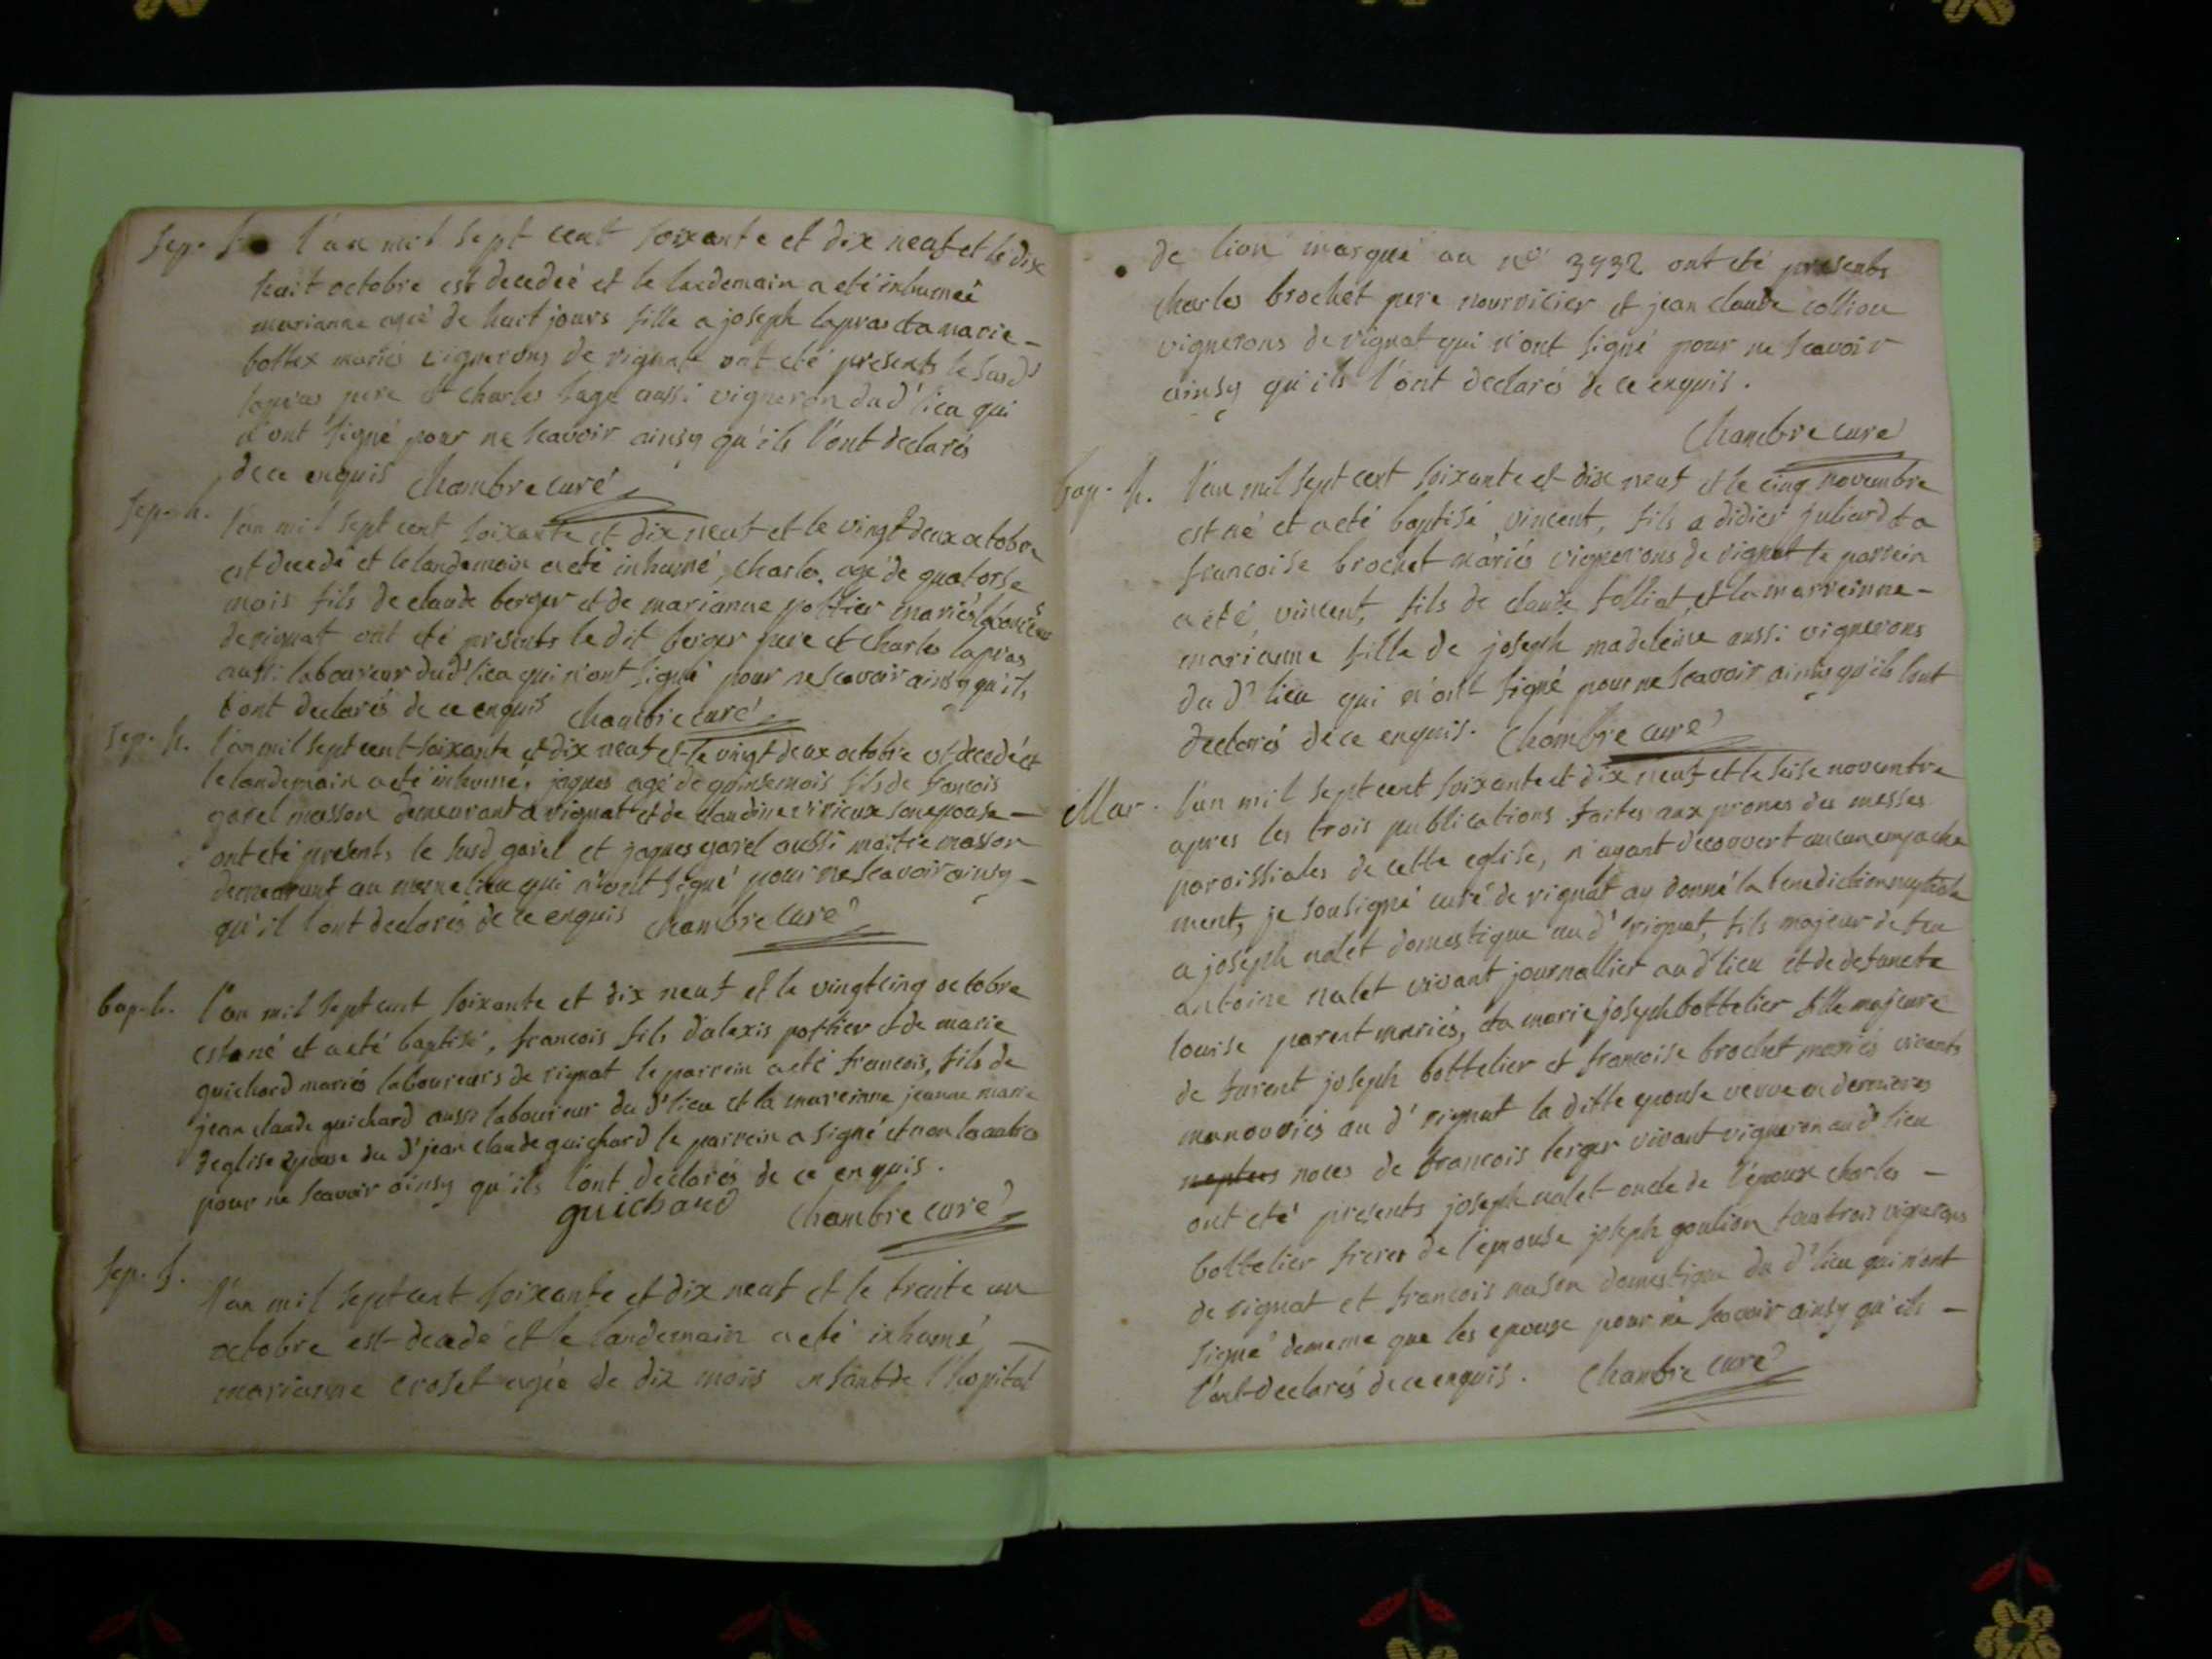 Sep. f. l'an mil sept cent soixante et dix neuf et le dix
huit octobre est decedeé et le landemain a eté inhumeé
marianne ageé de huit jours fille a joseph lapras et a marie -
bottex mariés vignerons de rignat ont eté presents le susd^t
lapras pere et charles sage aussi vigneron dud^t lieu qui
n'ont signé pour ne scavoir ainsy qu'ils l'ont declarés
de ce enquis Chambre curé
Sep. h. l'an mil sept cent soixante et dix neuf et le vingt deux octobre
est decedé et le landemain a eté inhumé, charles, agé de quatorse
mois fils de claude berger et de marianne pottier mariés laboureurs
de rignat ont eté presents le dit berger pere et charles lapras
aussi laboureur dud^t lieu qui n'ont signé pour ne scavoir ainsy qu'ils
l'ont declarés de ce enquis Chambre curé
Sep. h. l'an mil sept cent soixante et dix neuf et le vingt deux octobre est decedé et
le landemain a eté inhumé, jaques agé de quinse mois fils de francois
garel masson demeurant a rignat et de claudine virieux son epouse -
ont eté presents le susd garel et jaques garel aussi maitre masson
demeurant au meme lieu qui n'ont signé pour ne scavoir ainsy -
qu'il l'ont declarés de ce enquis Chambre curé
bap. h. l'an mil sept cent soixante et dix neuf et le vingt cinq octobre
est né et a eté baptisé, francois fils d'alexis pottier et de marie
guichard mariés laboureurs de rignat le parrein a eté francois, fils de
jean claude guichard aussi laboureur du d^t lieu et la marreinne jeanne marie
deglise epouse du d^t jean claude guichard le parrein a signé et non les autres
pour ne scavoir ainsy qu'ils l'ont declarés de ce enquis.
guichard Chambre curé
Sep. f. l'an mil sept cent soixante et dix neuf et le trente un
octobre est decedé et le landemain a eté inhumé -
marianne croset ageé de dix mois enfant de l'hopital
de lion marqué au n^o 3732 ont eté presents
charles brochet pere nourricier et jean claude colliou
vignerons de rignat qui n'ont signé pour ne scavoir
ainsy qu'ils l'ont declarés de ce enquis.
Chambre curé
bap. h. l'an mil sept cent soixante et dix neuf et le cinq novembre
est né et a eté baptisé, vincent, fils a didier juliard et a
francoise brochet mariés vignerons de rignat le parrein
a eté, vincent, fils de claude folliat, et la marreinne -
marianne fille de joseph madeleine aussi vignerons
du d^t lieu qui n'ont signé pour ne scavoir ainsy qu'ils l'ont
declarés de ce enquis. Chambre curé
Mar. l'an mil sept cent soixante et dix neuf et le seise novembre
apres les trois publications faites aux prones des messes
paroissiales de cette eglise, n'ayant decouvert aucun empache
ment, je sousigné curé de rignat ay donné la benediction nuptiale
a joseph nalet domestique aud^t rignat, fils majeur de feu
antoine nalet vivant journallier aud^t lieu et de defuncte
louise parent mariés, et a marie joseph bottelier fille majeure
de furent joseph bottelier et francoise brochet mariés vivants
manouvriés au d^t rignat la ditte epouse veuve en dernieres
noces de francois berger vivant vigneron aud^t lieu
ont eté presents joseph nalet oncle de l'epoux charles -
bottelier frere de l'epouse joseph goulion tous trois vignerons
de rignat et francois nason domestique du d^t lieu qui n'ont
signé dememe que les epoux pour ne scavoir ainsy qu'ils -
l'ont declarés de ce enquis. Chambre curé